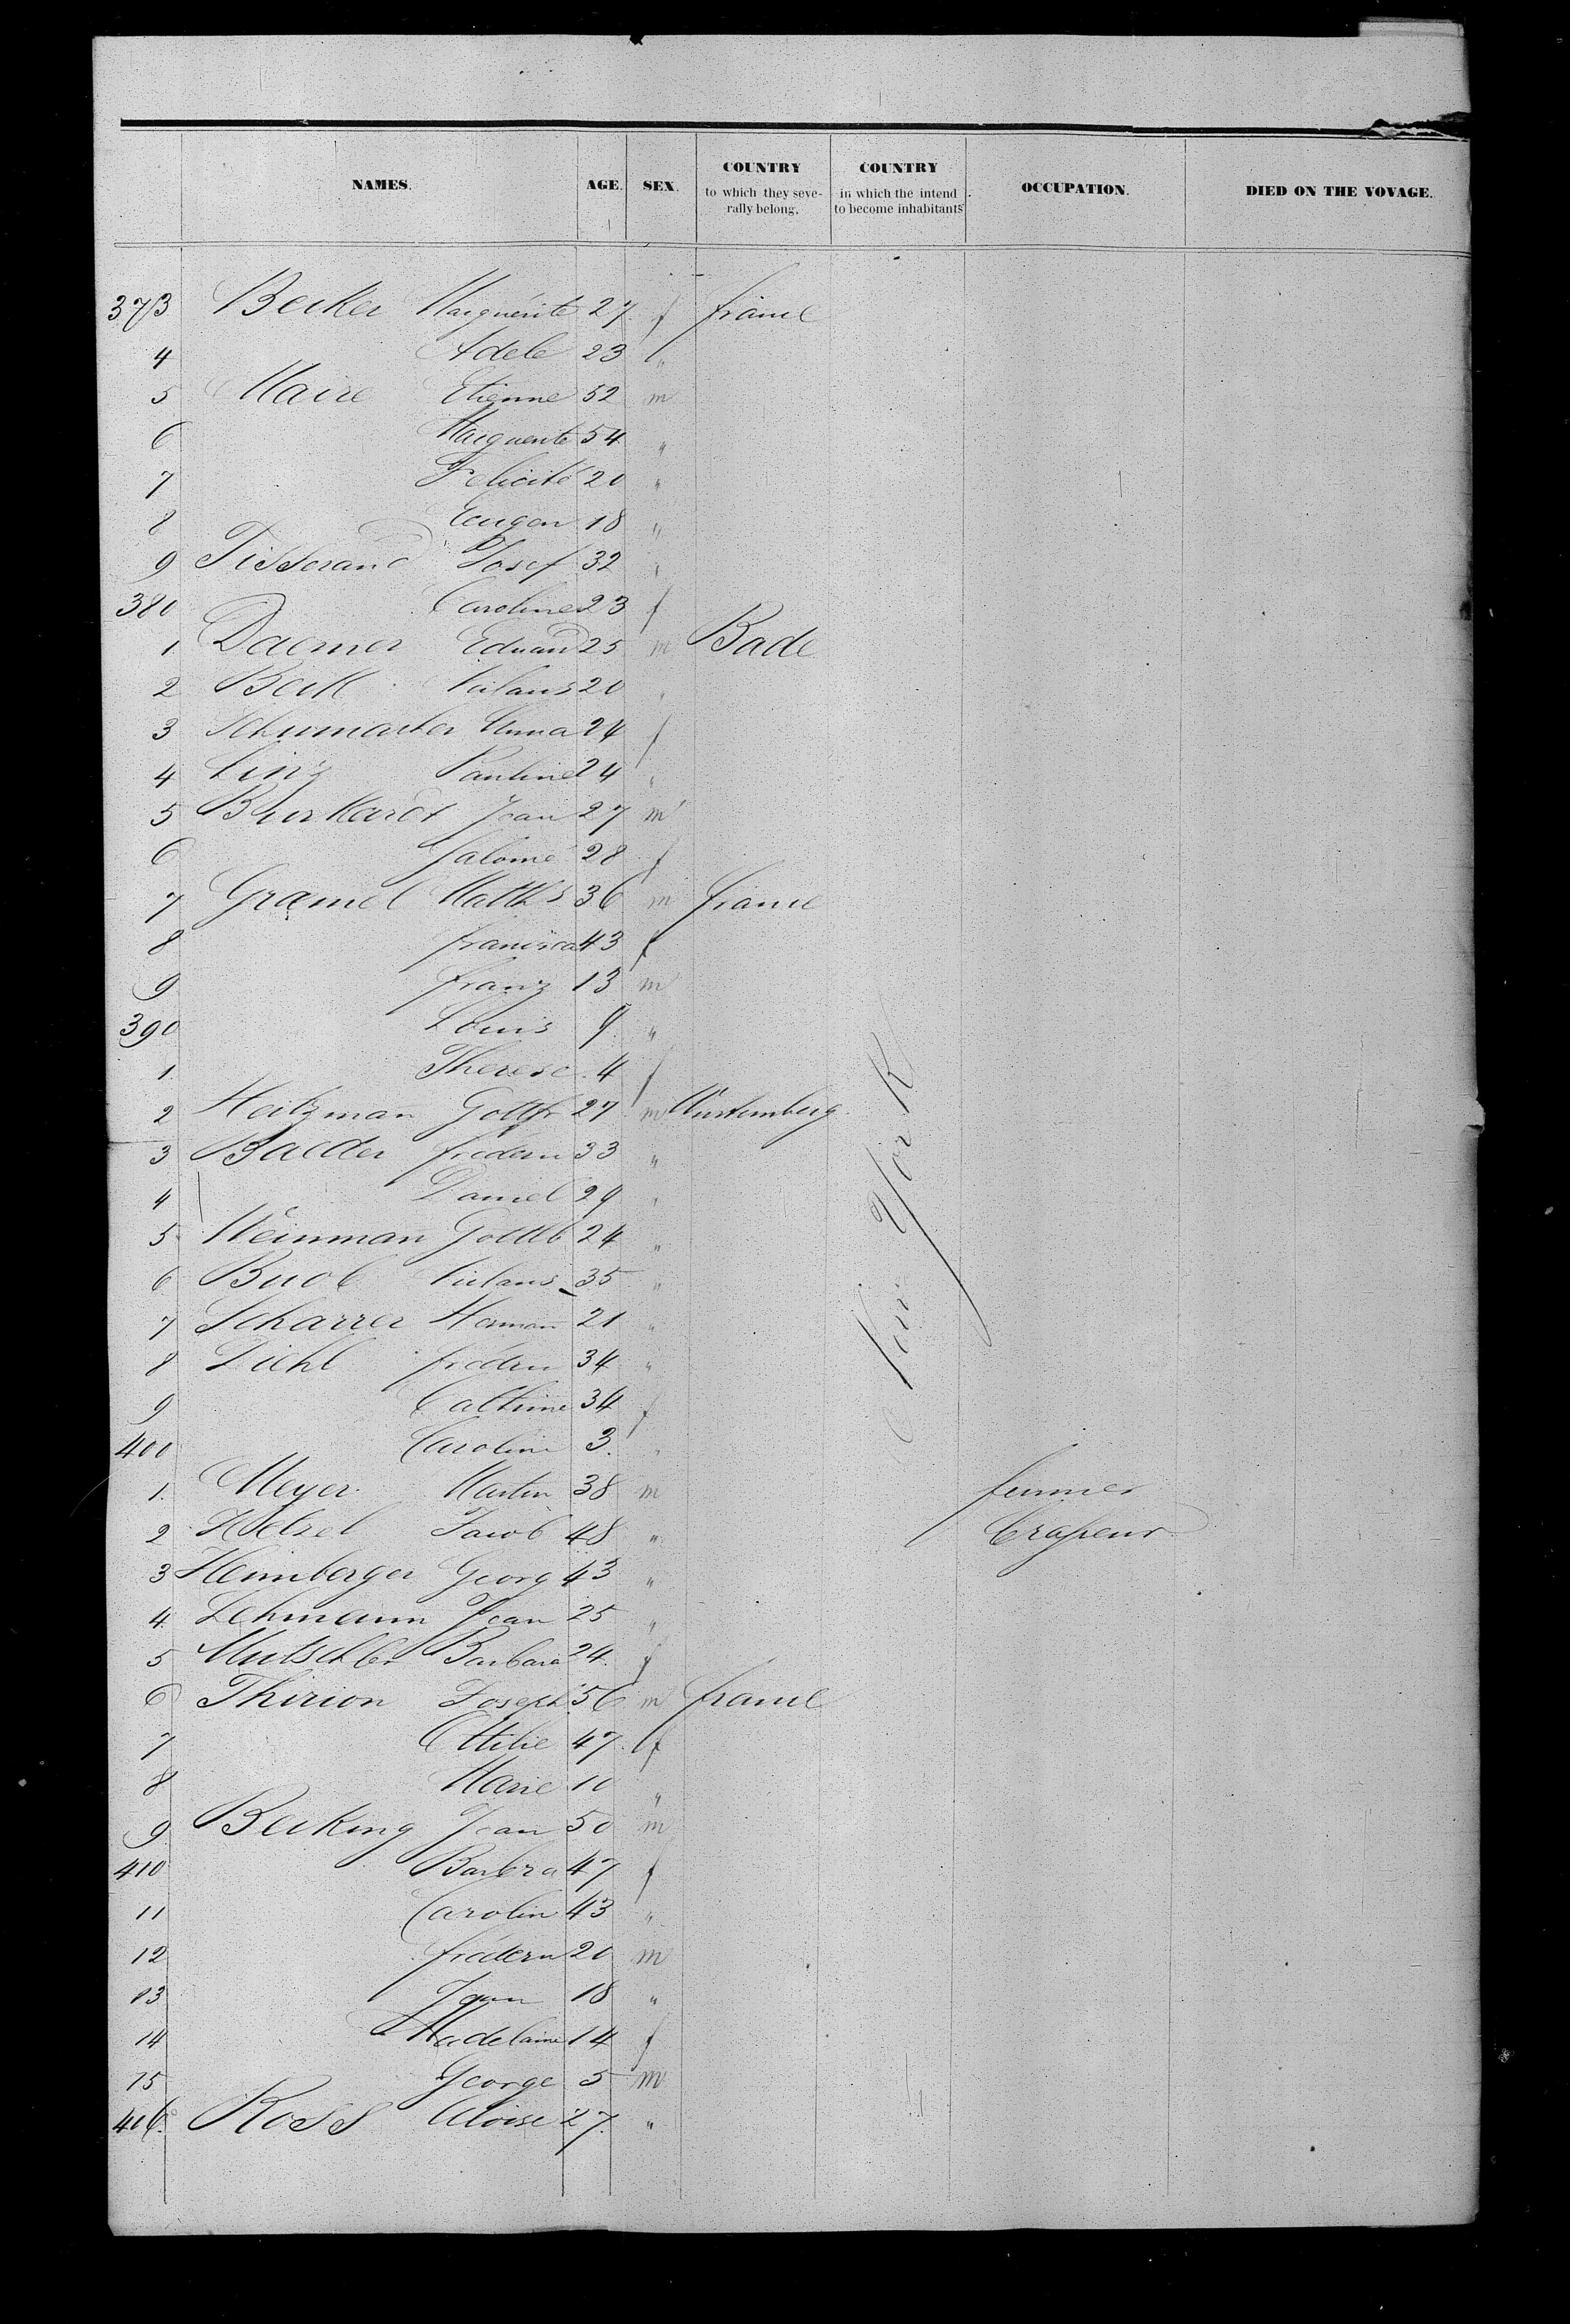 NAMES. AGE. SEX. COUNTRY to which they seve- rally belong. COUNTRY in which the intend to become inhabitants OCCUPATION. DIED ON THE VOVAGE.
373 Becker Marguerite 27 f france
4 Adele 23 "
5 Maire Etienne 52 m
6 Marguerite 54 "
7 Felicité 20 "
8 Eugen 18 "
9 Tisserand Josef 32 "
380 Caroline 23 f
1 Daemer Eduard 25 m Bade
2 Beck 20 "
3 Schumacher Anna 24 f
4 Linz Pauline 24 "
5 Burkardt Jean 27 m
6 Salomé 28 f
7 Gramel Matths 36 m france
8 francisca 43 f
9 franz 13 m
390 Louis 9 "
1 Therese 4 f
2 Heitzman Gottfr 27 m Würtemberg
3 Baeder frederic 33 "
4 Daniel 29 "
5 Weinman Gottlb 24 "
6 Buob 35 "
7 Scharrer Herman 21 "
8 Diehl frederic 34 "
9 Cathrine 34 f
400 Caroline 3 "
1 Meyer Martin 38 m
2 Jacob 48 "
3 Heimberger Georg 43 "
4 Lehmann Jean 25 "
5 Mutschler Barbara 24 f
6 Thirion Joseph 56 m france
7 Ottilie 47 f
8 Marie 10 "
9 Becking Jean 50 m
410 Barbra 47 f
11 Carolin 43 "
12 frederic 20 m
13 Jean 18 "
14 Madelaine 14 f
15 George 5 m
416 Ross Aloise 27 "
New York